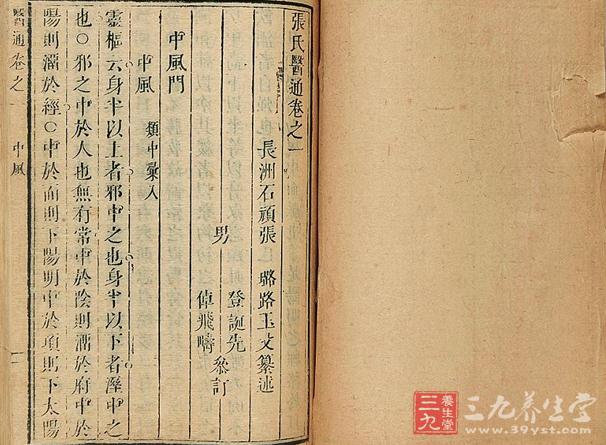 張氏醫通卷之一
長洲石頑張 璐路玉父纂述
男
登誕先
倬飛疇
參訂
中風門
中風 類中彙入
靈樞云身半以上者邪中之也身半以下者溼中之
也○邪之中於人也無有常中於陰則溜於府中於
陽則溜於經○中於面則下陽明中於項則下太陽
醫通卷之一 中風 一
三九
養生堂
三九养生堂
www.39yst.com